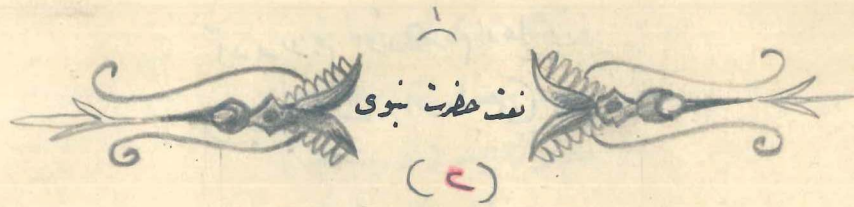 ١
نعت حضرت نبوی
(٢)